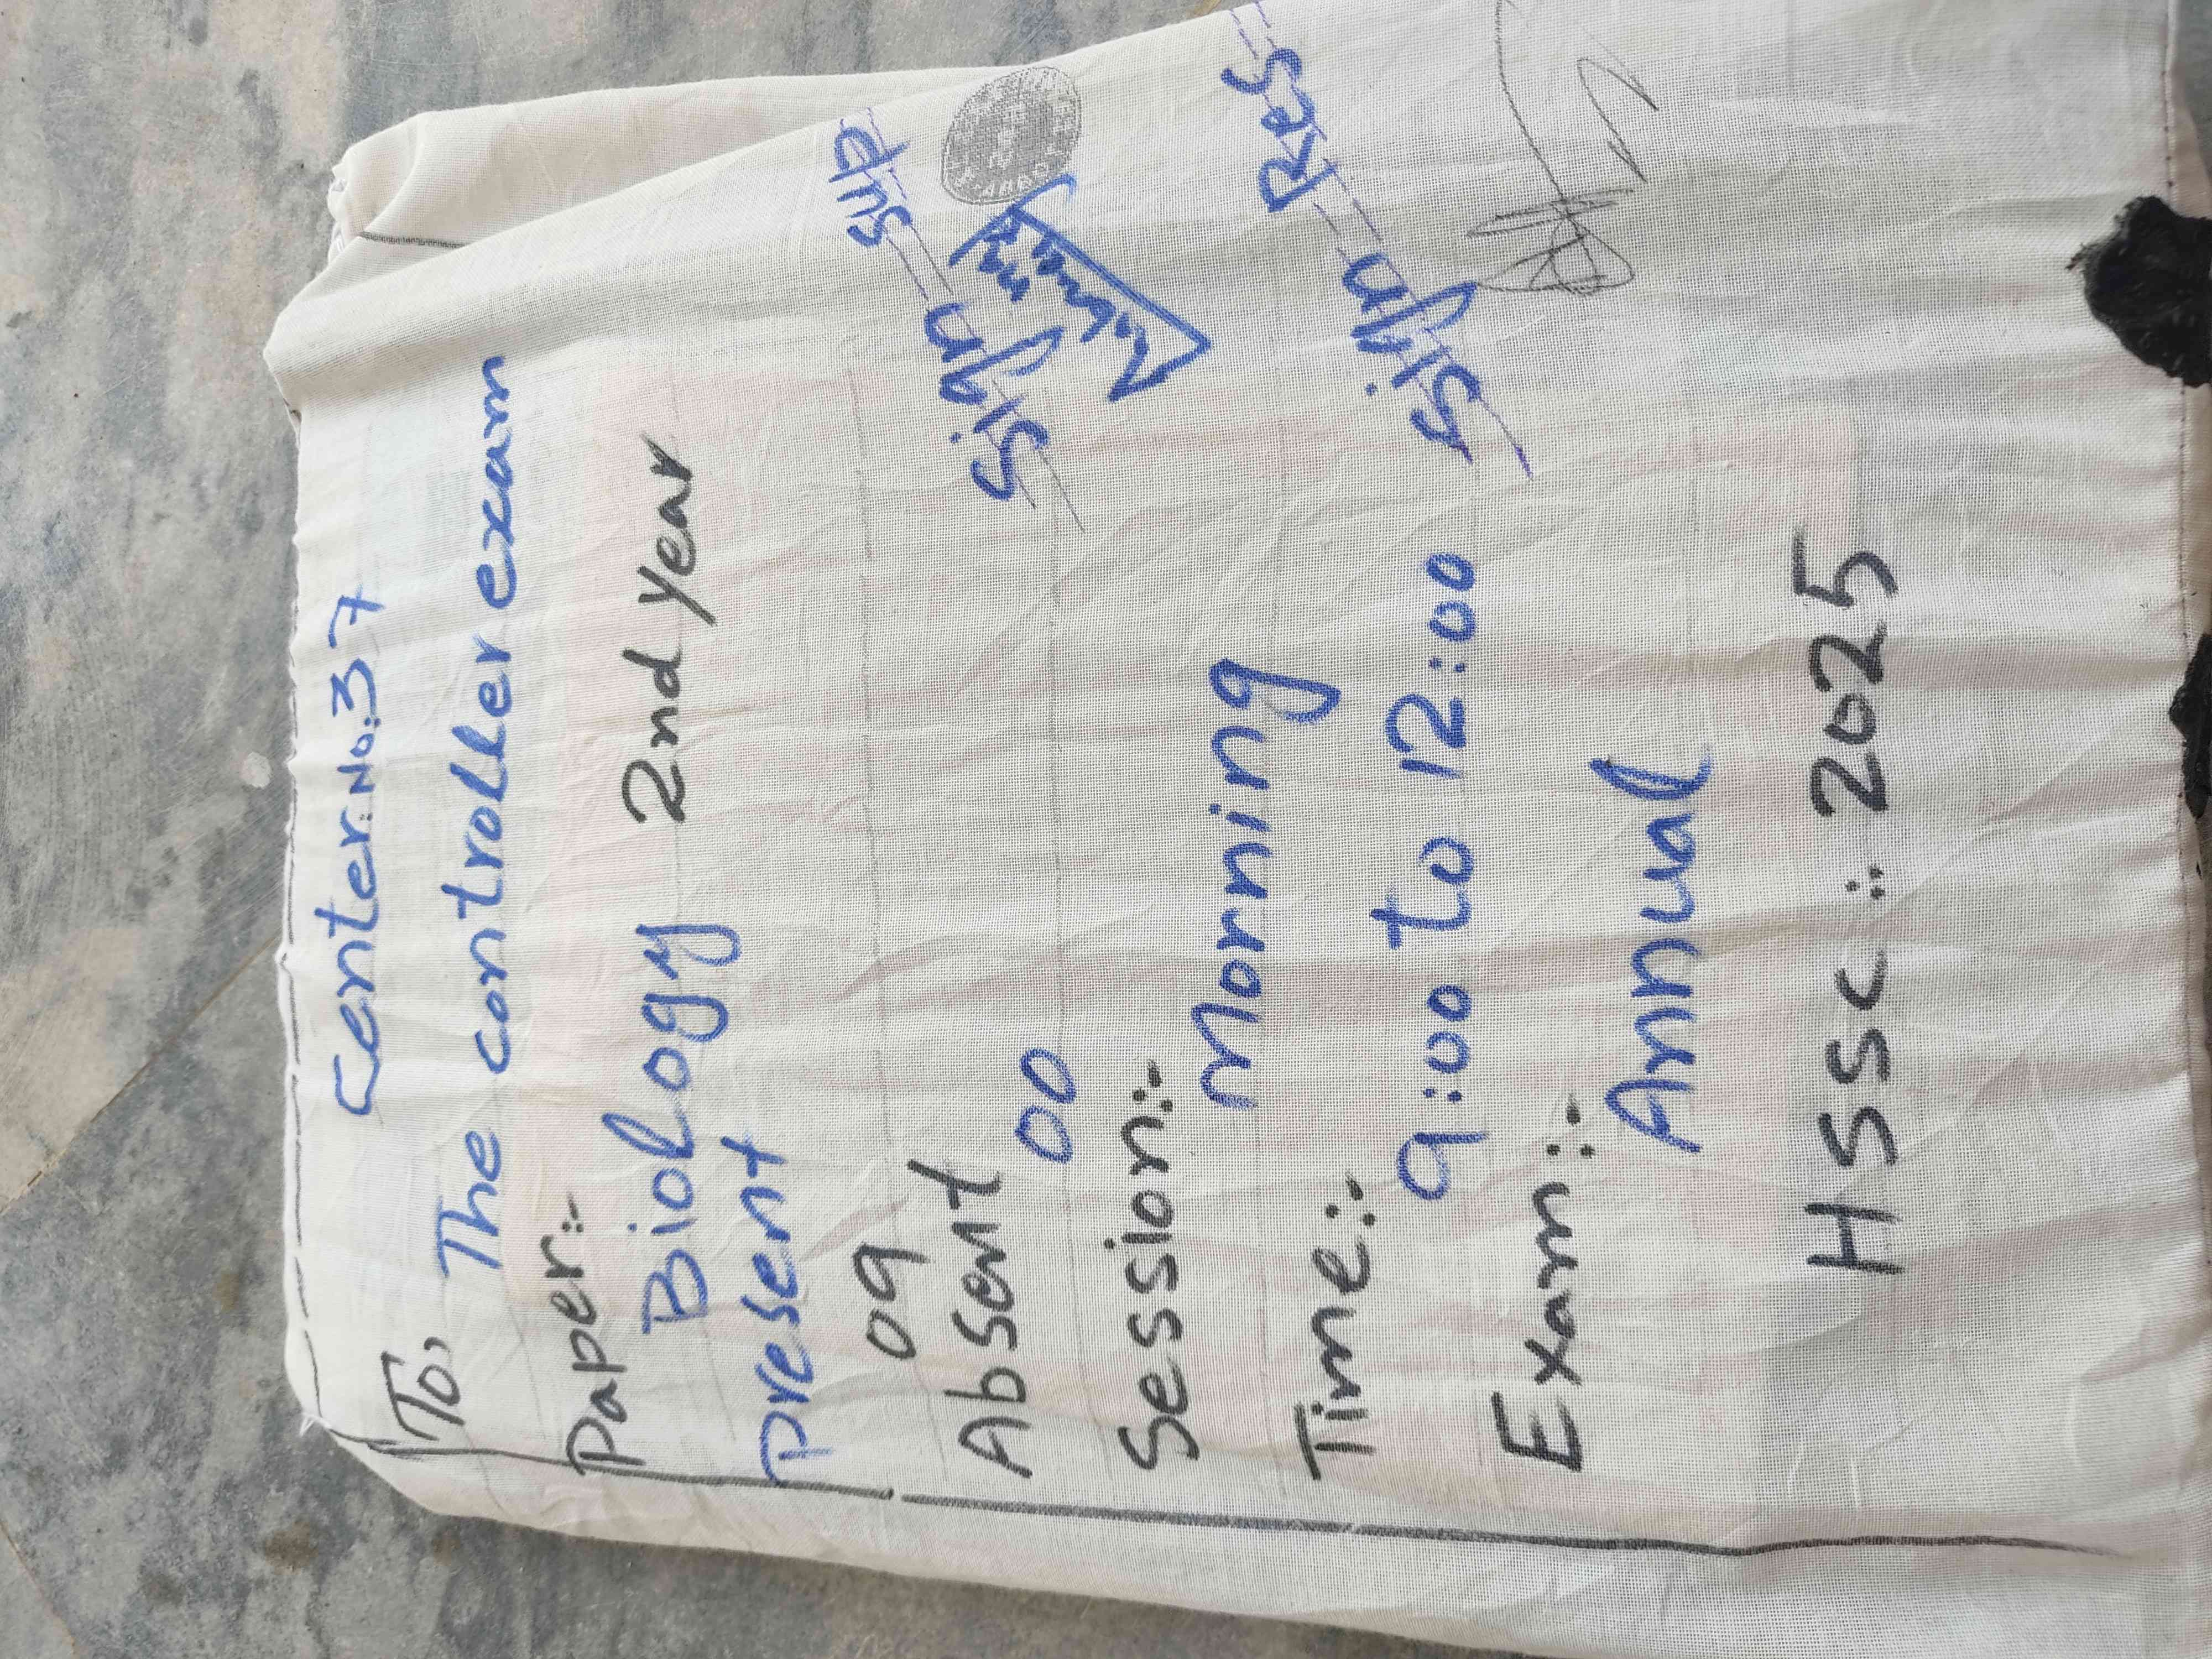 Center:No:37
To,
The controller exam
Paper:-
Biology 2nd year
Present
09
Absent
00
Session:-
Morning
Time:-
9:00 to 12:00
Exam:-
Annual
HSSC:: 2025
Sign Sup
Sign Res